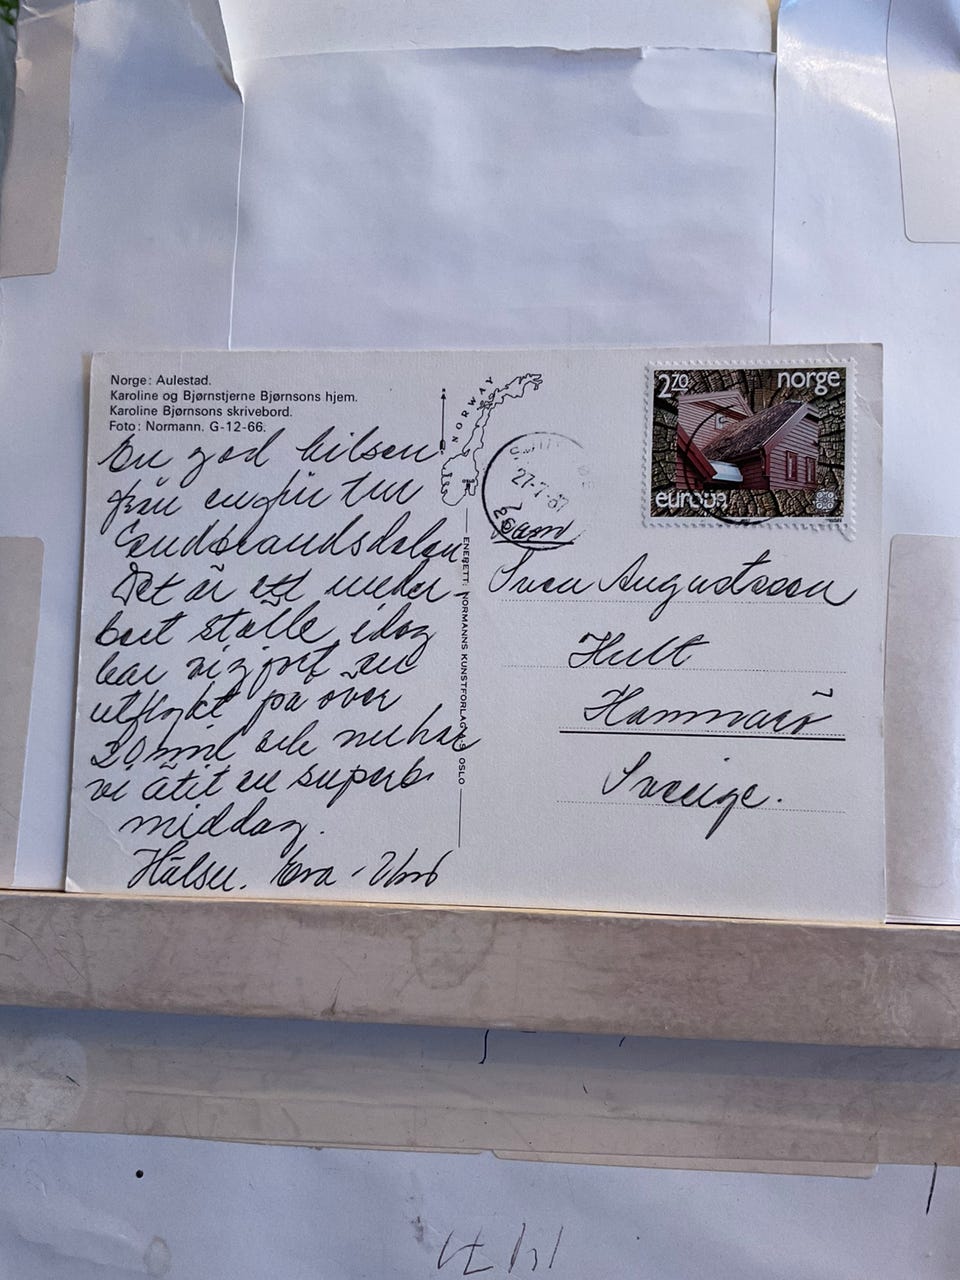 Norge: Aulestad.
Karoline og Bjørnstjerne Bjørnsons hjem.
Karoline Bjørnsons skrivebord.
Foto: Normann. G-12-66.
En god hilsen
från en fin tur
Det är ett under-
bart ställe, idag
har vi gjort en
utflykt på över
30 mil och nu har
vi ätit en superb
middag.
Hälsn. Eva -
NORWAY
OSLO
ENERETT: NORMANNS KUNSTFORLAG A/S OSLO
27-7-87
2.70 norge
europa
Fam
Sven Augustsson
Hult
Hammarö
Sverige.